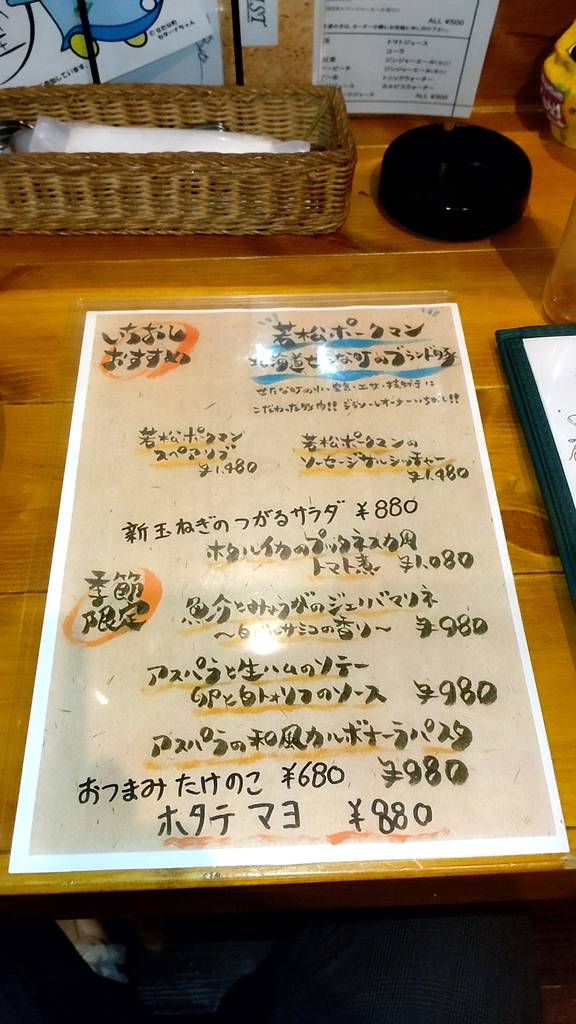 せたな町
セターナちゃん
ALL ¥500
トマトジュース
コーラ
ジンジャーエール(甘口)
ジンジャーエール(辛口)
トニックウォーター
カルピスウォーター
ALL ¥500
いちおし
おすすめ
若松ポークマン
北海道せたな町のブランド豚
せたな町の水・空気・エサ・技術等に
こだわった豚肉!! オーナーいちおし!!
若松ポークマン
スペアリブ
¥1,480
若松ポークマンの
ソーセージサルシッチャー
¥1,480
新玉ねぎのつがるサラダ ¥880
ホタルイカのプッタネスカ風
トマト煮 ¥1,080
季節
限定
魚介とみょうがのジェノバマリネ
~白バルサミコの香り~ ¥980
アスパラと生ハムのソテー
卵と白トリュフのソース ¥980
アスパラの和風カルボナーラパスタ
¥980
おつまみ たけのこ ¥680
ホタテ マヨ ¥880